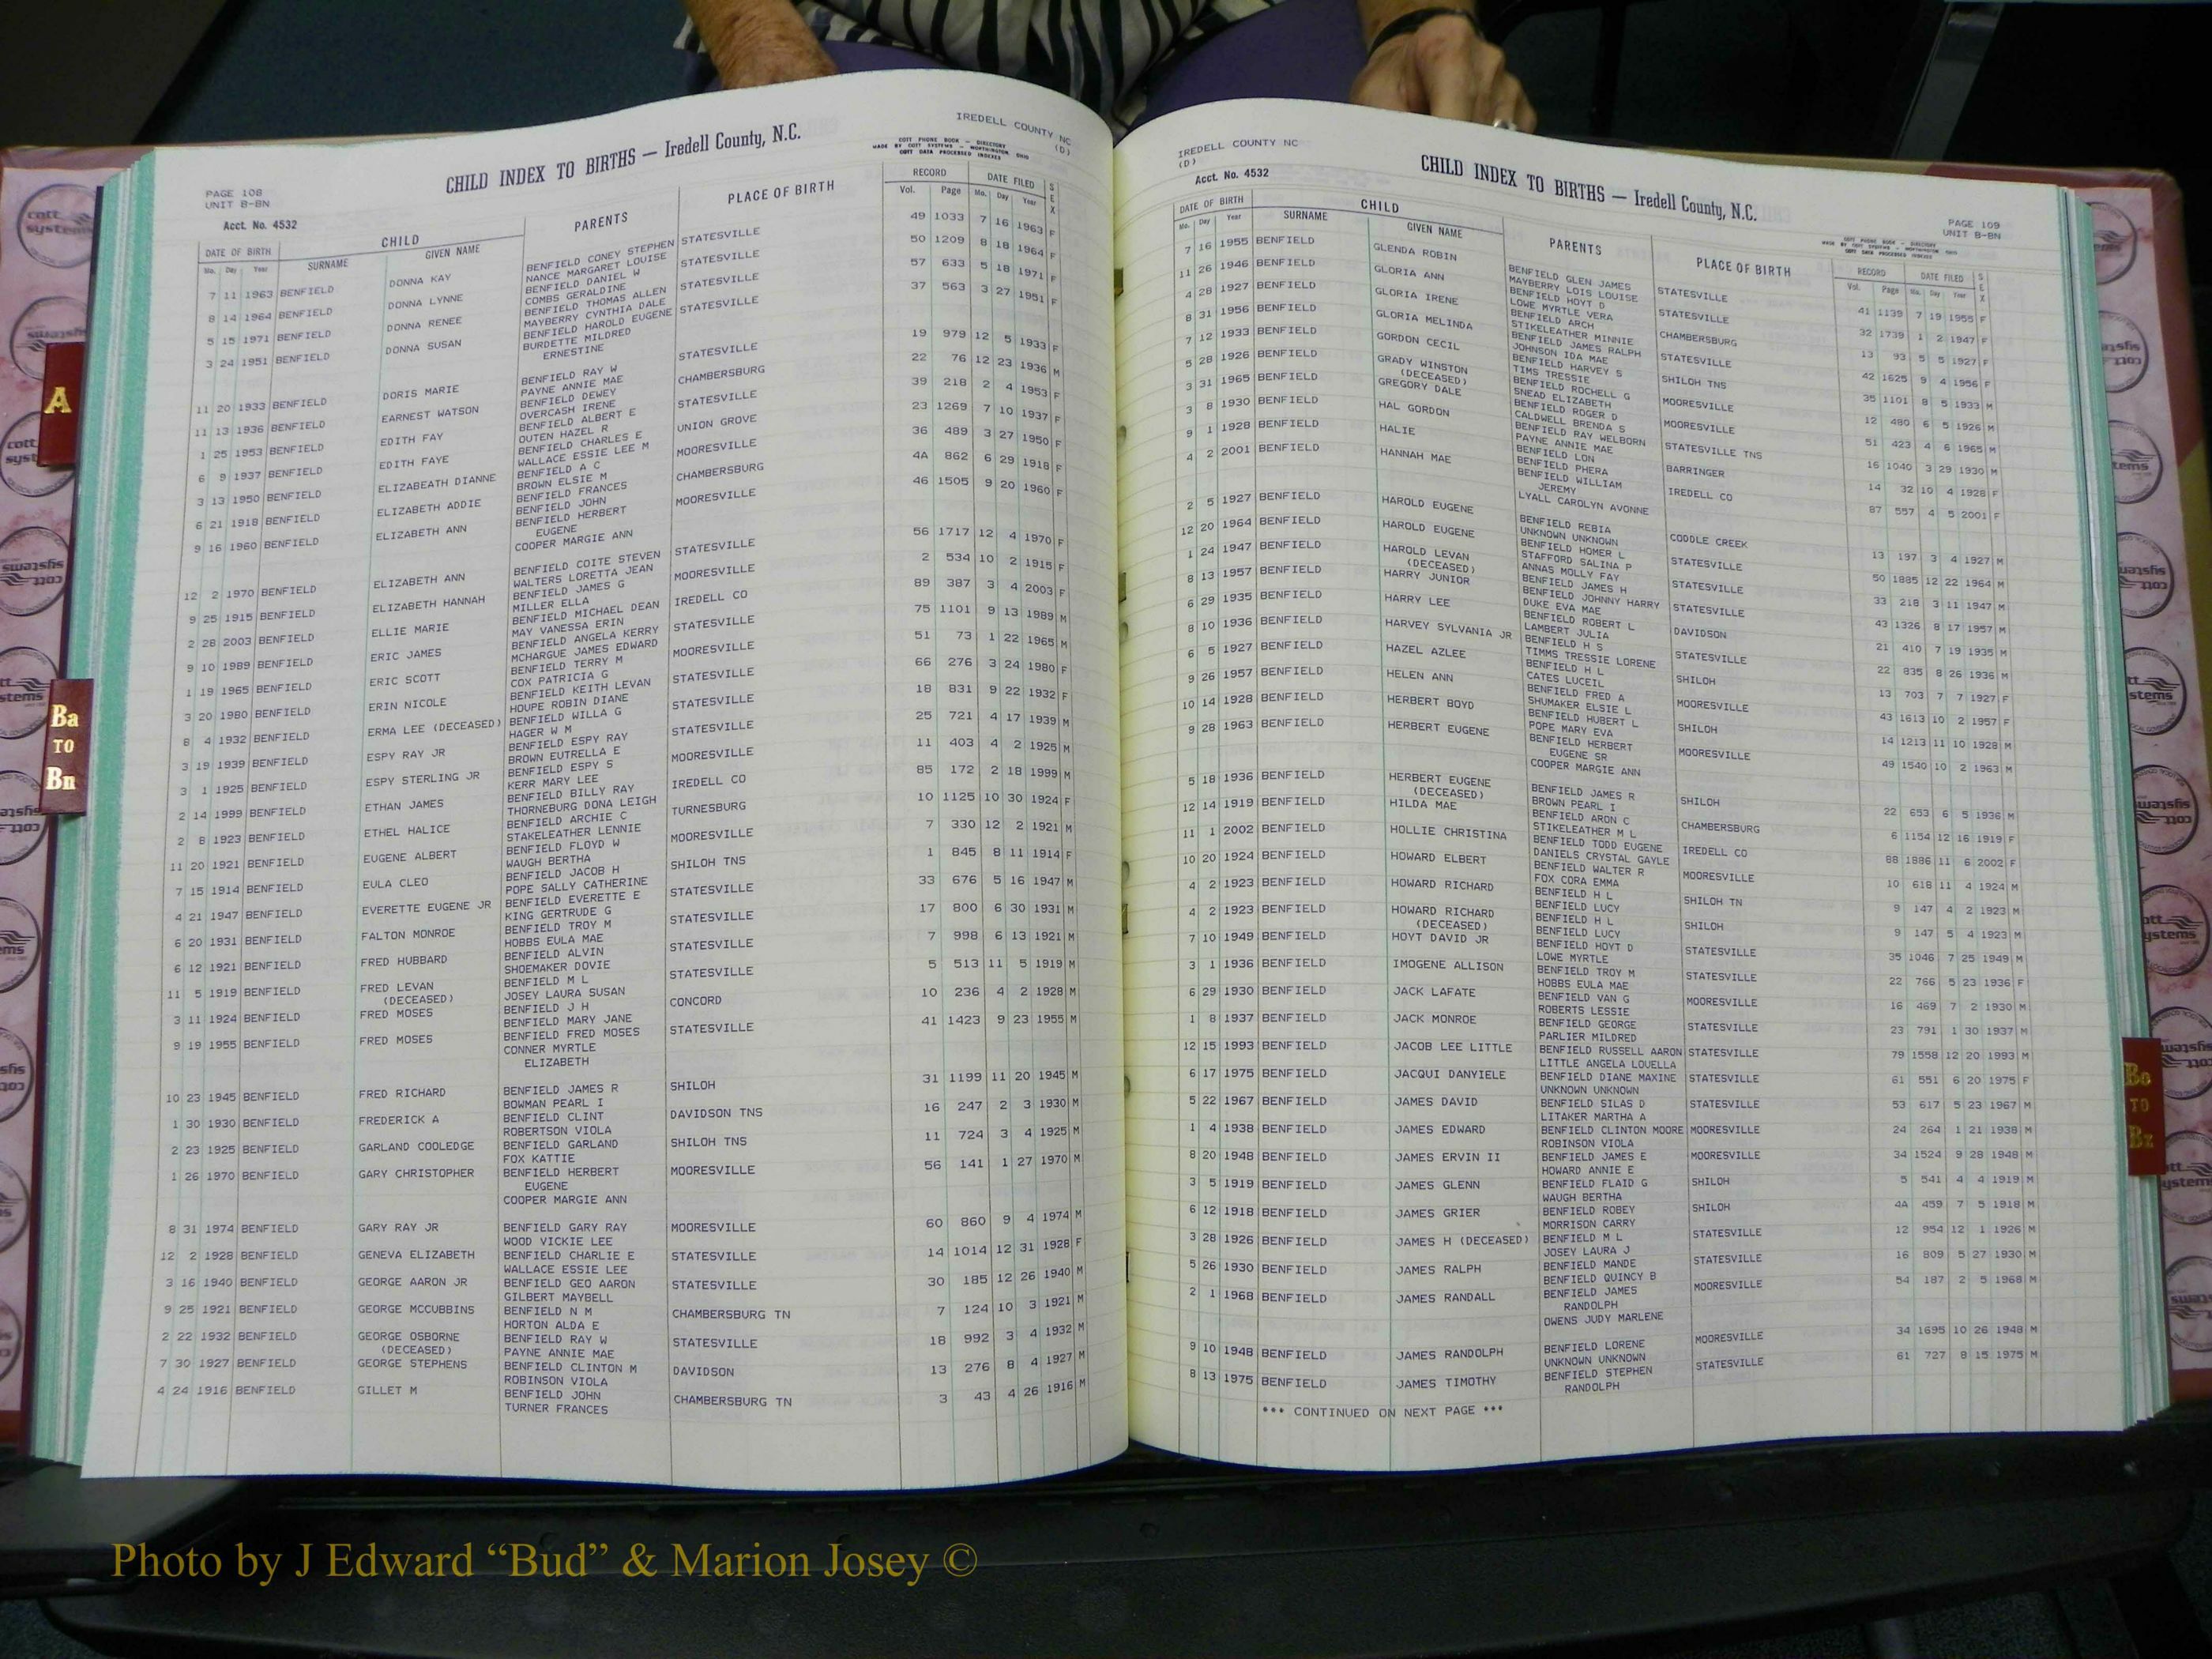 IREDELL COUNTY NC
(D)
COTT PHONE BOOK — DIRECTORY
MADE BY COTT SYSTEMS — WORTHINGTON OHIO
COTT DATA PROCESSED INDEXES
CHILD INDEX TO BIRTHS — Iredell County, N.C.
PAGE 108
UNIT B-BN
Acct. No. 4532
DATE OF BIRTH CHILD PARENTS PLACE OF BIRTH RECORD DATE FILED SEX
Mo. Day Year SURNAME GIVEN NAME Vol. Page Mo. Day Year
7 11 1963 BENFIELD DONNA KAY BENFIELD CONEY STEPHEN STATESVILLE 49 1033 7 16 1963 F
NANCE MARGARET LOUISE
8 14 1964 BENFIELD DONNA LYNNE BENFIELD DANIEL W STATESVILLE 50 1209 8 18 1964 F
COMBS GERALDINE
5 15 1971 BENFIELD DONNA RENEE BENFIELD THOMAS ALLEN STATESVILLE 57 633 5 18 1971 F
MAYBERRY CYNTHIA DALE
3 24 1951 BENFIELD DONNA SUSAN BENFIELD HAROLD EUGENE STATESVILLE 37 563 3 27 1951 F
BURDETTE MILDRED
ERNESTINE
11 20 1933 BENFIELD DORIS MARIE BENFIELD RAY W STATESVILLE 19 979 12 5 1933 F
PAYNE ANNIE MAE
11 13 1936 BENFIELD EARNEST WATSON BENFIELD DEWEY CHAMBERSBURG 22 76 12 23 1936 M
OVERCASH IRENE
1 25 1953 BENFIELD EDITH FAY BENFIELD ALBERT E STATESVILLE 39 218 2 4 1953 F
OUTEN HAZEL R
6 9 1937 BENFIELD EDITH FAYE BENFIELD CHARLES E UNION GROVE 23 1269 7 10 1937 F
WALLACE ESSIE LEE M
3 13 1950 BENFIELD ELIZABEATH DIANNE BENFIELD A C MOORESVILLE 36 489 3 27 1950 F
BROWN ELSIE M
6 21 1918 BENFIELD ELIZABETH ADDIE BENFIELD FRANCES CHAMBERSBURG 4A 862 6 29 1918 F
BENFIELD JOHN
9 16 1960 BENFIELD ELIZABETH ANN BENFIELD HERBERT MOORESVILLE 46 1505 9 20 1960 F
EUGENE
COOPER MARGIE ANN
12 2 1970 BENFIELD ELIZABETH ANN BENFIELD COITE STEVEN STATESVILLE 56 1717 12 4 1970 F
WALTERS LORETTA JEAN
9 25 1915 BENFIELD ELIZABETH HANNAH BENFIELD JAMES G MOORESVILLE 2 534 10 2 1915 F
MILLER ELLA
2 28 2003 BENFIELD ELLIE MARIE BENFIELD MICHAEL DEAN IREDELL CO 89 387 3 4 2003 F
MAY VANESSA ERIN
9 10 1989 BENFIELD ERIC JAMES BENFIELD ANGELA KERRY STATESVILLE 75 1101 9 13 1989 M
MCHARGUE JAMES EDWARD
1 19 1965 BENFIELD ERIC SCOTT BENFIELD TERRY M MOORESVILLE 51 73 1 22 1965 M
COX PATRICIA G
3 20 1980 BENFIELD ERIN NICOLE BENFIELD KEITH LEVAN STATESVILLE 66 276 3 24 1980 F
HOUPE ROBIN DIANE
8 4 1932 BENFIELD ERMA LEE (DECEASED) BENFIELD WILLA G STATESVILLE 18 831 9 22 1932 F
HAGER W M
3 19 1939 BENFIELD ESPY RAY JR BENFIELD ESPY RAY STATESVILLE 25 721 4 17 1939 M
BROWN EUTRELLA E
3 1 1925 BENFIELD ESPY STERLING JR BENFIELD ESPY S MOORESVILLE 11 403 4 2 1925 M
KERR MARY LEE
2 14 1999 BENFIELD ETHAN JAMES BENFIELD BILLY RAY IREDELL CO 85 172 2 18 1999 M
THORNEBURG DONA LEIGH
2 8 1923 BENFIELD ETHEL HALICE BENFIELD ARCHIE C TURNESBURG 10 1125 10 30 1924 F
STAKELEATHER LENNIE
11 20 1921 BENFIELD EUGENE ALBERT BENFIELD FLOYD W MOORESVILLE 7 330 12 2 1921 M
WAUGH BERTHA
7 15 1914 BENFIELD EULA CLEO BENFIELD JACOB H SHILOH TNS 1 845 8 11 1914 F
POPE SALLY CATHERINE
4 21 1947 BENFIELD EVERETTE EUGENE JR BENFIELD EVERETTE E STATESVILLE 33 676 5 16 1947 M
KING GERTRUDE G
6 20 1931 BENFIELD FALTON MONROE BENFIELD TROY M STATESVILLE 17 800 6 30 1931 M
HOBBS EULA MAE
6 12 1921 BENFIELD FRED HUBBARD BENFIELD ALVIN STATESVILLE 7 998 6 13 1921 M
SHOEMAKER DOVIE
11 5 1919 BENFIELD FRED LEVAN BENFIELD M L STATESVILLE 5 513 11 5 1919 M
(DECEASED) JOSEY LAURA SUSAN
3 11 1924 BENFIELD FRED MOSES BENFIELD J H CONCORD 10 236 4 2 1928 M
BENFIELD MARY JANE
9 19 1955 BENFIELD FRED MOSES BENFIELD FRED MOSES STATESVILLE 41 1423 9 23 1955 M
CONNER MYRTLE
ELIZABETH
10 23 1945 BENFIELD FRED RICHARD BENFIELD JAMES R SHILOH 31 1199 11 20 1945 M
BOWMAN PEARL I
1 30 1930 BENFIELD FREDERICK A BENFIELD CLINT DAVIDSON TNS 16 247 2 3 1930 M
ROBERTSON VIOLA
2 23 1925 BENFIELD GARLAND COOLEDGE BENFIELD GARLAND SHILOH TNS 11 724 3 4 1925 M
FOX KATTIE
1 26 1970 BENFIELD GARY CHRISTOPHER BENFIELD HERBERT MOORESVILLE 56 141 1 27 1970 M
EUGENE
COOPER MARGIE ANN
8 31 1974 BENFIELD GARY RAY JR BENFIELD GARY RAY MOORESVILLE 60 860 9 4 1974 M
WOOD VICKIE LEE
12 2 1928 BENFIELD GENEVA ELIZABETH BENFIELD CHARLIE E STATESVILLE 14 1014 12 31 1928 F
WALLACE ESSIE LEE
3 16 1940 BENFIELD GEORGE AARON JR BENFIELD GEO AARON STATESVILLE 30 185 12 26 1940 M
GILBERT MAYBELL
9 25 1921 BENFIELD GEORGE MCCUBBINS BENFIELD N M CHAMBERSBURG TN 7 124 10 3 1921 M
HORTON ALDA E
2 22 1932 BENFIELD GEORGE OSBORNE BENFIELD RAY W STATESVILLE 18 992 3 4 1932 M
(DECEASED) PAYNE ANNIE MAE
7 30 1927 BENFIELD GEORGE STEPHENS BENFIELD CLINTON M DAVIDSON 13 276 8 4 1927 M
ROBINSON VIOLA
4 24 1916 BENFIELD GILLET M BENFIELD JOHN CHAMBERSBURG TN 3 43 4 26 1916 M
TURNER FRANCES
IREDELL COUNTY NC
(D)
Acct. No. 4532
CHILD INDEX TO BIRTHS — Iredell County, N.C.
PAGE 109
UNIT B-BN
COTT PHONE BOOK — DIRECTORY
MADE BY COTT SYSTEMS — WORTHINGTON OHIO
COTT DATA PROCESSED INDEXES
DATE OF BIRTH CHILD PARENTS PLACE OF BIRTH RECORD DATE FILED SEX
Mo. Day Year SURNAME GIVEN NAME Vol. Page Mo. Day Year
7 16 1955 BENFIELD GLENDA ROBIN BENFIELD GLEN JAMES STATESVILLE 41 1139 7 19 1955 F
MAYBERRY LOIS LOUISE
11 26 1946 BENFIELD GLORIA ANN BENFIELD HOYT D STATESVILLE 32 1739 1 2 1947 F
LOWE MYRTLE VERA
4 28 1927 BENFIELD GLORIA IRENE BENFIELD ARCH CHAMBERSBURG 13 93 5 5 1927 F
STIKELEATHER MINNIE
8 31 1956 BENFIELD GLORIA MELINDA BENFIELD JAMES RALPH STATESVILLE 42 1625 9 4 1956 F
JOHNSON IDA MAE
7 12 1933 BENFIELD GORDON CECIL BENFIELD HARVEY S SHILOH TNS 35 1101 8 5 1933 M
TIMS TRESSIE
5 28 1926 BENFIELD GRADY WINSTON BENFIELD ROCHELL G MOORESVILLE 12 480 6 5 1926 M
(DECEASED) SNEAD ELIZABETH
3 31 1965 BENFIELD GREGORY DALE BENFIELD ROGER D MOORESVILLE 51 423 4 6 1965 M
CALDWELL BRENDA S
3 8 1930 BENFIELD HAL GORDON BENFIELD RAY WELBORN STATESVILLE TNS 16 1040 3 29 1930 M
PAYNE ANNIE MAE
9 1 1928 BENFIELD HALIE BENFIELD LON BARRINGER 14 32 10 4 1928 F
BENFIELD PHERA
4 2 2001 BENFIELD HANNAH MAE BENFIELD WILLIAM IREDELL CO 87 557 4 5 2001 F
JEREMY
LYALL CAROLYN AVONNE
2 5 1927 BENFIELD HAROLD EUGENE BENFIELD REBIA CODDLE CREEK 13 197 3 4 1927 M
UNKNOWN UNKNOWN
12 20 1964 BENFIELD HAROLD EUGENE BENFIELD HOMER L STATESVILLE 50 1885 12 22 1964 M
STAFFORD SALINA P
1 24 1947 BENFIELD HAROLD LEVAN ANNAS MOLLY FAY STATESVILLE 33 218 3 11 1947 M
(DECEASED) BENFIELD JAMES H
8 13 1957 BENFIELD HARRY JUNIOR BENFIELD JOHNNY HARRY STATESVILLE 43 1326 8 17 1957 M
DUKE EVA MAE
6 29 1935 BENFIELD HARRY LEE BENFIELD ROBERT L DAVIDSON 21 410 7 19 1935 M
LAMBERT JULIA
8 10 1936 BENFIELD HARVEY SYLVANIA JR BENFIELD H S STATESVILLE 22 835 8 26 1936 M
TIMMS TRESSIE LORENE
6 5 1927 BENFIELD HAZEL AZLEE BENFIELD H L SHILOH 13 703 7 7 1927 F
CATES LUCEIL
9 26 1957 BENFIELD HELEN ANN BENFIELD FRED A MOORESVILLE 43 1613 10 2 1957 F
SHUMAKER ELSIE L
10 14 1928 BENFIELD HERBERT BOYD BENFIELD HUBERT L SHILOH 14 1213 11 10 1928 M
POPE MARY EVA
9 28 1963 BENFIELD HERBERT EUGENE BENFIELD HERBERT MOORESVILLE 49 1540 10 2 1963 M
EUGENE SR
COOPER MARGIE ANN
5 18 1936 BENFIELD HERBERT EUGENE BENFIELD JAMES R SHILOH 22 653 6 5 1936 M
(DECEASED) BROWN PEARL I
12 14 1919 BENFIELD HILDA MAE BENFIELD ARON C CHAMBERSBURG 6 1154 12 16 1919 F
STIKELEATHER M L
11 1 2002 BENFIELD HOLLIE CHRISTINA BENFIELD TODD EUGENE IREDELL CO 88 1886 11 6 2002 F
DANIELS CRYSTAL GAYLE
10 20 1924 BENFIELD HOWARD ELBERT BENFIELD WALTER R MOORESVILLE 10 618 11 4 1924 M
FOX CORA EMMA
4 2 1923 BENFIELD HOWARD RICHARD BENFIELD H L SHILOH TN 9 147 4 2 1923 M
BENFIELD LUCY
4 2 1923 BENFIELD HOWARD RICHARD BENFIELD H L SHILOH 9 147 5 4 1923 M
(DECEASED) BENFIELD LUCY
7 10 1949 BENFIELD HOYT DAVID JR BENFIELD HOYT D STATESVILLE 35 1046 7 25 1949 M
LOWE MYRTLE
3 1 1936 BENFIELD IMOGENE ALLISON BENFIELD TROY M STATESVILLE 22 766 5 23 1936 F
HOBBS EULA MAE
6 29 1930 BENFIELD JACK LAFATE BENFIELD VAN G MOORESVILLE 16 469 7 2 1930 M
ROBERTS LESSIE
1 8 1937 BENFIELD JACK MONROE BENFIELD GEORGE STATESVILLE 23 791 1 30 1937 M
PARLIER MILDRED
12 15 1993 BENFIELD JACOB LEE LITTLE BENFIELD RUSSELL AARON STATESVILLE 79 1558 12 20 1993 M
LITTLE ANGELA LOUELLA
6 17 1975 BENFIELD JACQUI DANYIELE BENFIELD DIANE MAXINE STATESVILLE 61 551 6 20 1975 F
UNKNOWN UNKNOWN
5 22 1967 BENFIELD JAMES DAVID BENFIELD SILAS D STATESVILLE 53 617 5 23 1967 M
LITAKER MARTHA A
1 4 1938 BENFIELD JAMES EDWARD BENFIELD CLINTON MOORE MOORESVILLE 24 264 1 21 1938 M
ROBINSON VIOLA
8 20 1948 BENFIELD JAMES ERVIN II BENFIELD JAMES E MOORESVILLE 34 1524 9 28 1948 M
HOWARD ANNIE E
3 5 1919 BENFIELD JAMES GLENN BENFIELD FLAID G SHILOH 5 541 4 4 1919 M
WAUGH BERTHA
6 12 1918 BENFIELD JAMES GRIER BENFIELD ROBEY SHILOH 4A 459 7 5 1918 M
MORRISON CARRY
3 28 1926 BENFIELD JAMES H (DECEASED) BENFIELD M L STATESVILLE 12 954 12 1 1926 M
JOSEY LAURA J
5 26 1930 BENFIELD JAMES RALPH BENFIELD MANDE STATESVILLE 16 809 5 27 1930 M
BENFIELD QUINCY B
2 1 1968 BENFIELD JAMES RANDALL BENFIELD JAMES MOORESVILLE 54 187 2 5 1968 M
RANDOLPH
OWENS JUDY MARLENE
9 10 1948 BENFIELD JAMES RANDOLPH BENFIELD LORENE MOORESVILLE 34 1695 10 26 1948 M
UNKNOWN UNKNOWN
8 13 1975 BENFIELD JAMES TIMOTHY BENFIELD STEPHEN STATESVILLE 61 727 8 15 1975 M
RANDOLPH
*** CONTINUED ON NEXT PAGE ***
A
Ba
TO
Bn
Bo
TO
Bz
cott
systems
Photo by J Edward “Bud” & Marion Josey ©